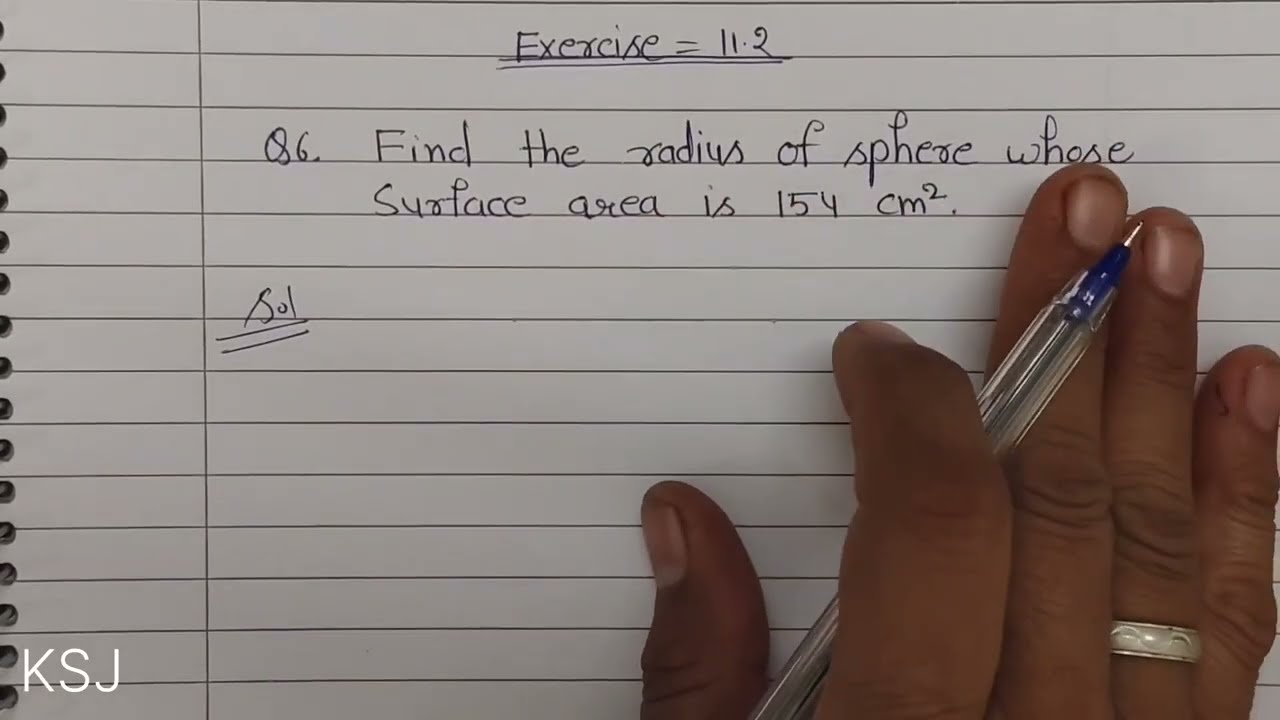 Exercise = 11.2
Q6. Find the radius of sphere whose
Surface area is 154 cm².
Sol
KSJ